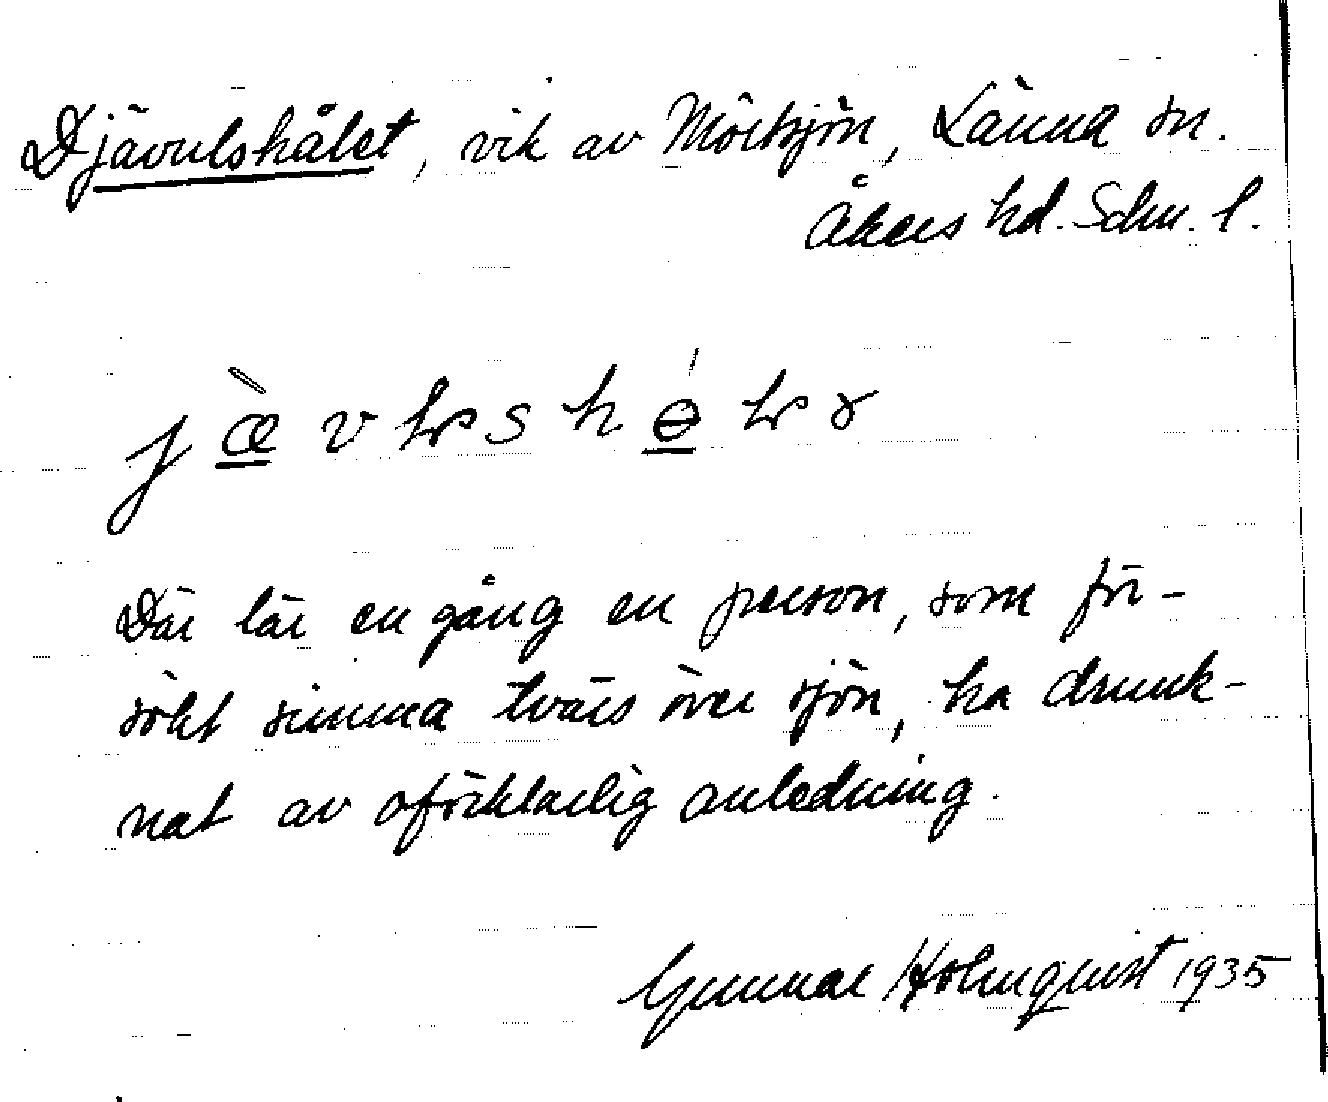 Djävulshålet, vik av Mörtsjön, Länna sn.
Åkers hd. Sdm. l.
Där lär en gång en person, som för-
sökt simma tvärs över sjön, ha drunk-
nat av oförklarlig anledning.
Gunnar Holmquist 1935